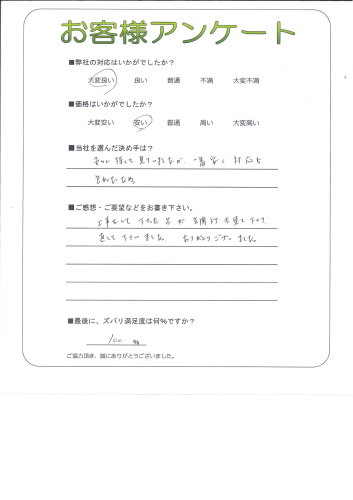 お客様アンケート
■弊社の対応はいかがでしたか？
大変良い 良い 普通 不満 大変不満
■価格はいかがでしたか？
大変安い 安い 普通 高い 大変高い
■当社を選んだ決め手は？
一番安く 対応も
ため。
■ご感想・ご要望などをお書き下さい。
工事をして下さった方が 玄関灯も見て下さり
直して下さいました。 ありがとうございました。
■最後に、ズバリ満足度は何％ですか？
100 %
ご協力頂き、誠にありがとうございました。